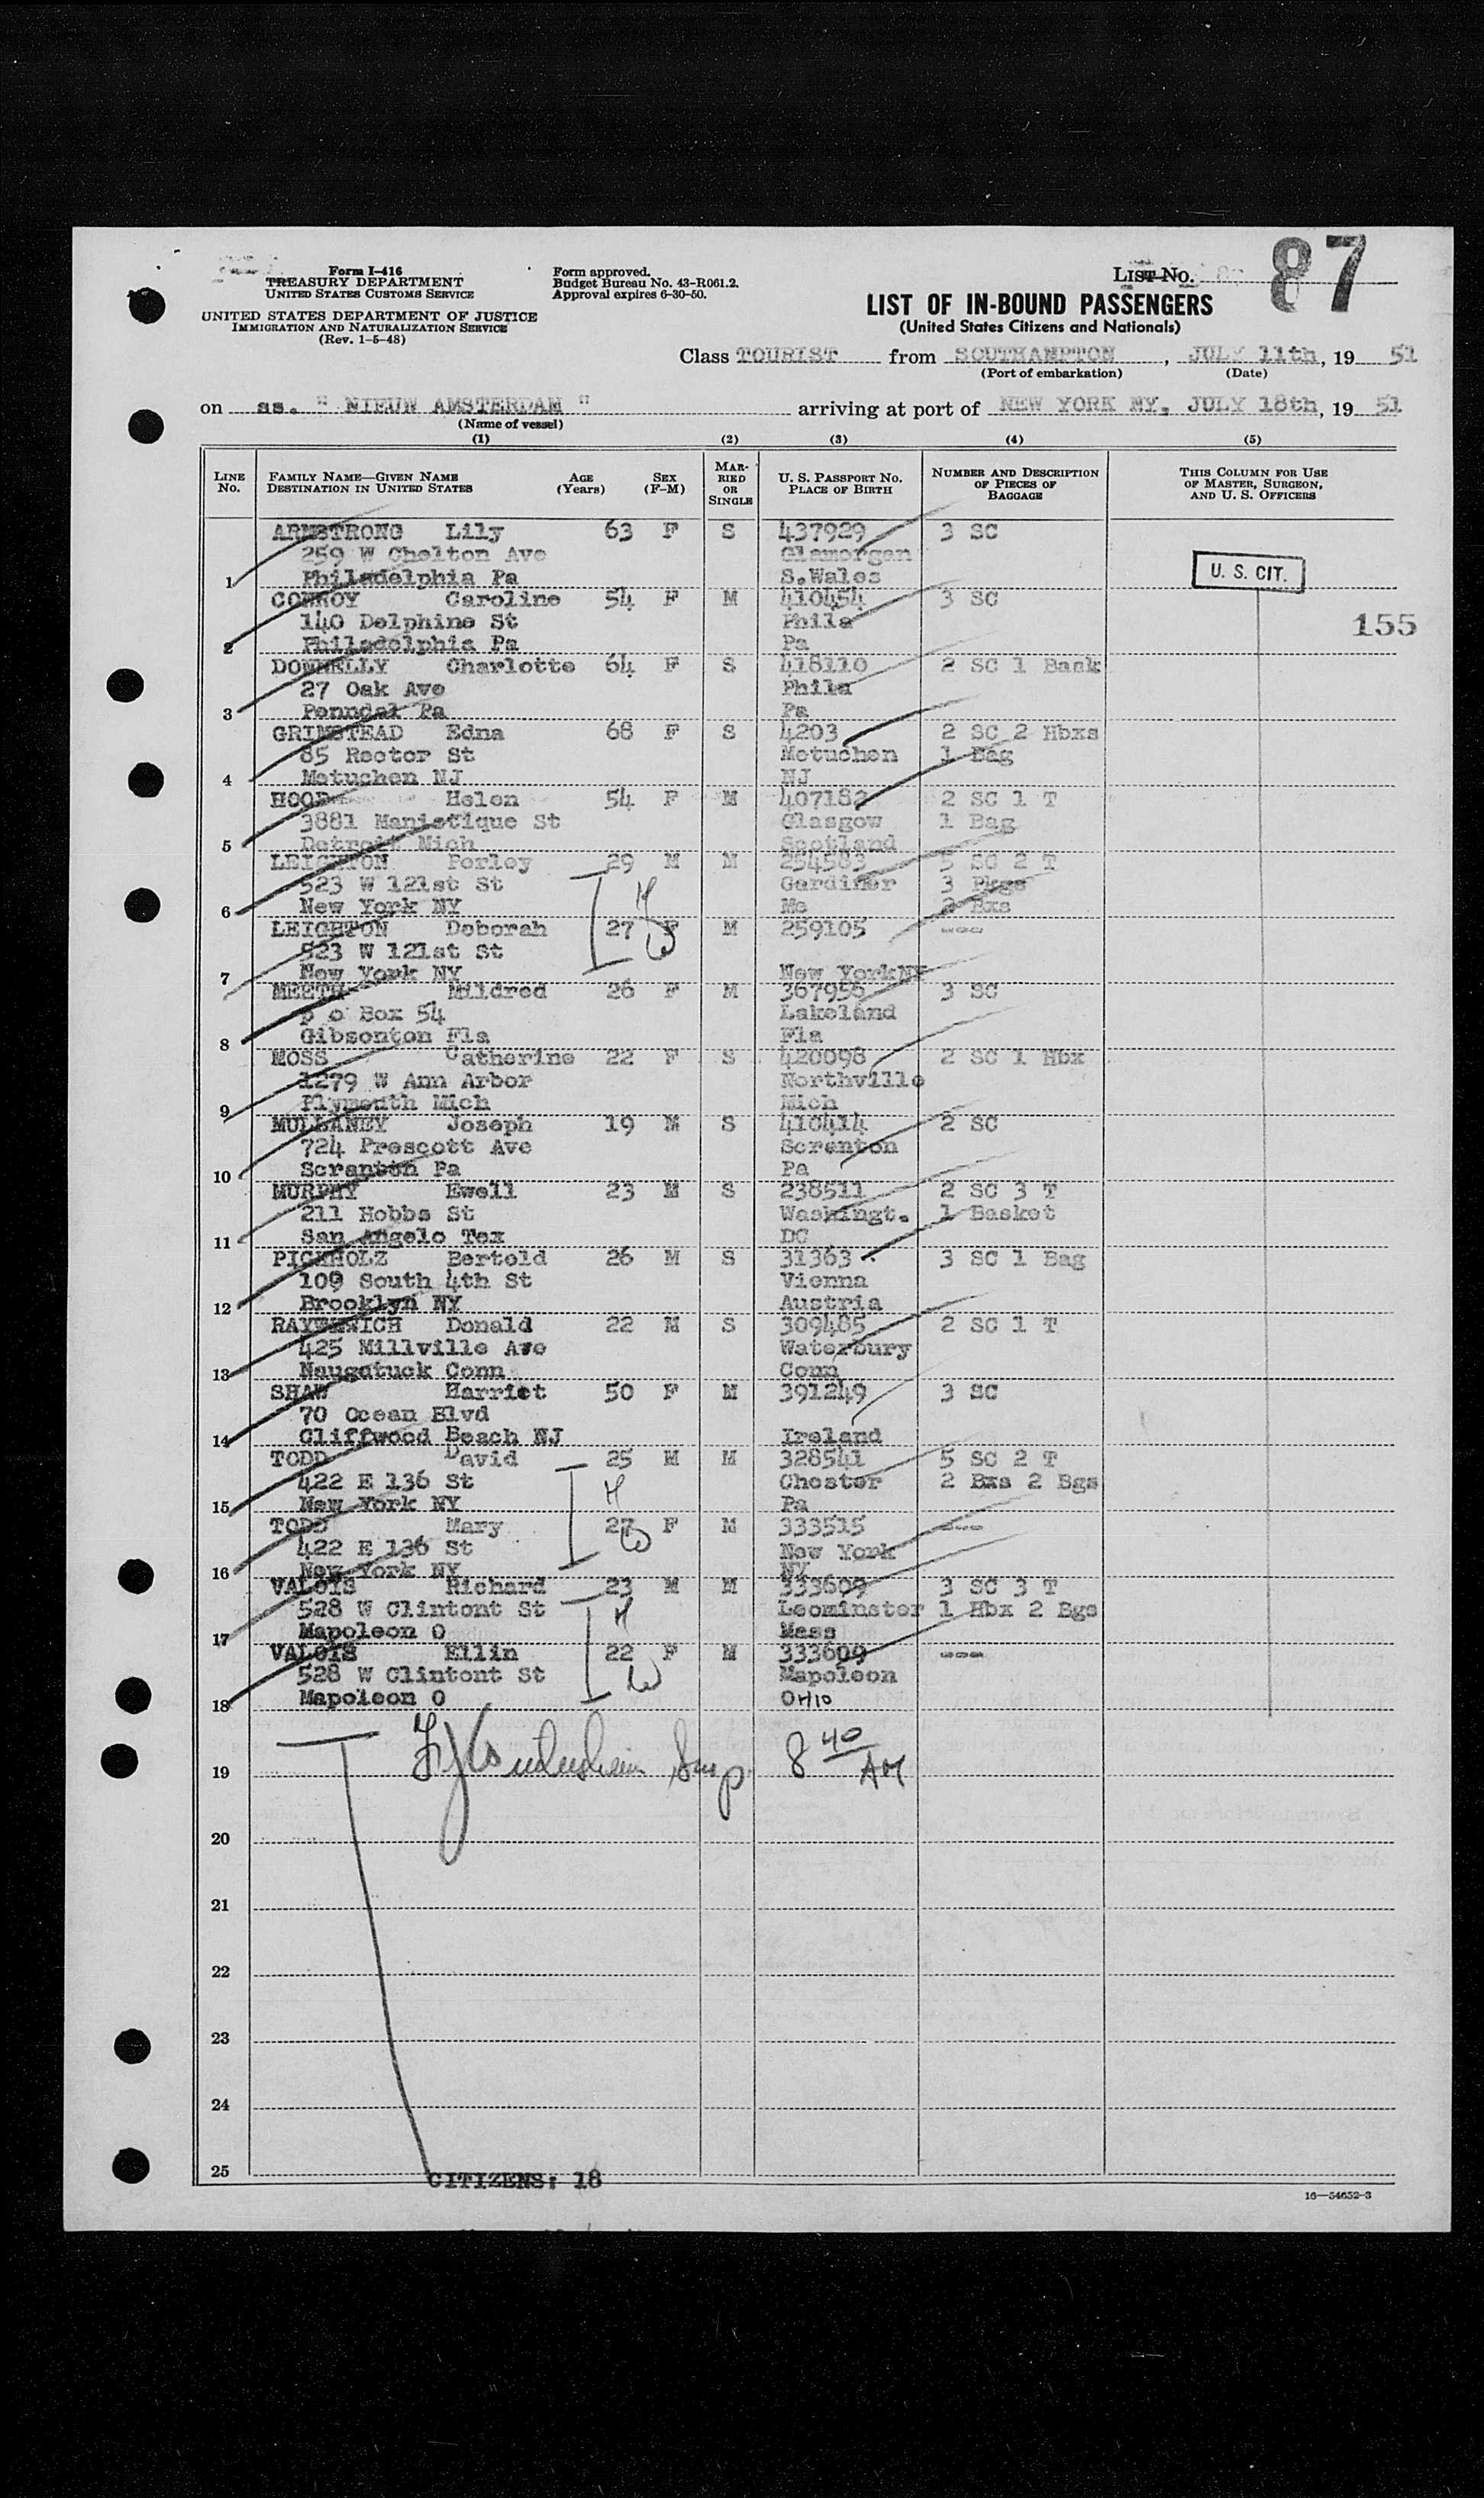 Form I-416
TREASURY DEPARTMENT
UNITED STATES CUSTOMS SERVICE
UNITED STATES DEPARTMENT OF JUSTICE
IMMIGRATION AND NATURALIZATION SERVICE
(Rev. 1-5-48)
Form approved.
Budget Bureau No. 43-R061.2.
Approval expires 6-30-50.
LIST NO. 87
LIST OF IN-BOUND PASSENGERS
(United States Citizens and Nationals)
Class TOURIST from SOUTHAMPTON, JULY 11th, 19 51
(Port of embarkation) (Date)
on ss. " NIEUW AMSTERDAM " arriving at port of NEW YORK NY, JULY 18th, 19 51
(Name of vessel)
(1) (2) (3) (4) (5)
LINE NO. FAMILY NAME—GIVEN NAME DESTINATION IN UNITED STATES AGE (Years) SEX (F-M) MARRIED OR SINGLE U. S. PASSPORT NO. PLACE OF BIRTH NUMBER AND DESCRIPTION OF PIECES OF BAGGAGE THIS COLUMN FOR USE OF MASTER, SURGEON, AND U. S. OFFICERS
ARMSTRONG Lily 63 F S 437929 3 SC
259 W Chelton Ave Glamorgan
1 Philadelphia Pa S.Wales U. S. CIT.
CONROY Caroline 54 F M 410454 3 SC
140 Delphine St Phila 155
2 Philadelphia Pa Pa
DONNELLY Charlotte 64 F S 418110 2 SC 1 Bask
27 Oak Ave Phila
3 Penndel Pa Pa
GRIMSTEAD Edna 68 F S 4203 2 SC 2 Hbxs
85 Rector St Metuchen 1 Bag
4 Metuchen NJ NJ
HOOD Helen 54 F M 407182 2 SC 1 T
3881 Manistique St Glasgow 1 Bag
5 Detroit Mich Scotland
LEIGHTON Perley 29 M M 254583 5 SC 2 T
523 W 121st St Gardiner 3 Pkgs
6 New York NY Me 2 Bxs
LEIGHTON Deborah 27 F M 259105 ---
523 W 121st St
7 New York NY New YorkNY
MEETH Mildred 26 F M 367956 3 SC
p o Box 54 Lakeland
8 Gibsonton Fla Fla
MOSS Catherine 22 F S 420098 2 SC 1 Hbx
1279 W Ann Arbor Northville
9 Plymouth Mich Mich
MULLANEY Joseph 19 M S 410414 2 SC
724 Prescott Ave Scranton
10 Scranton Pa Pa
MURPHY Ewell 23 M S 238511 2 SC 3 T
211 Hobbs St Washingt. 1 Basket
11 San Angelo Tex DC
PICKHOLZ Bertold 26 M S 31363 3 SC 1 Bag
109 South 4th St Vienna
12 Brooklyn NY Austria
Donald 22 M S 309485 2 SC 1 T
425 Millville Ave Waterbury
13 Naugatuck Conn Conn
SHAW Harriet 50 F M 391249 3 SC
70 Ocean Blvd
14 Cliffwood Beach NJ Ireland
TODD David 25 M M 328541 5 SC 2 T
422 E 136 St H Chester 2 Bxs 2 Bgs
15 New York NY Pa
TODD Mary 27 F M 333515 ---
422 E 136 St W New York
16 New York NY NY
VALOIS Richard 23 M M 333609 3 SC 3 T
528 W Clintont St H Leominster 1 Hbx 2 Bgs
17 Mapoleon O Mass
VALOIS Ellin 22 F M 333609 ---
528 W Clintont St W Mapoleon
18 Mapoleon O OHIO
19 Insp 8 40 AM
20
21
22
23
24
25
CITIZENS: 18
16—54652-3